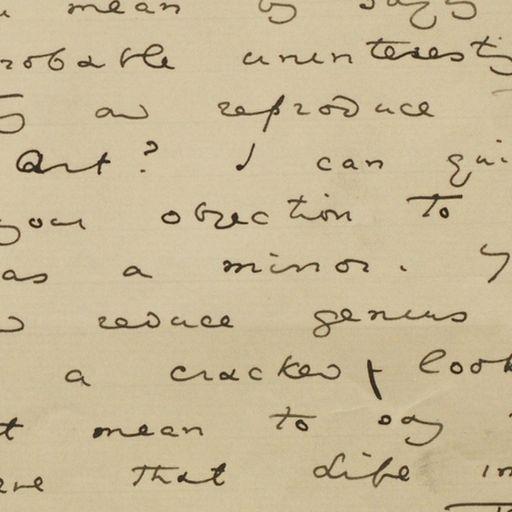 mean by say
robable uninteresti
and reproduce
Art? I can qui
your objection to
as a mirror. y
reduce genius
a cracked look
t mean to say
eve that Life im